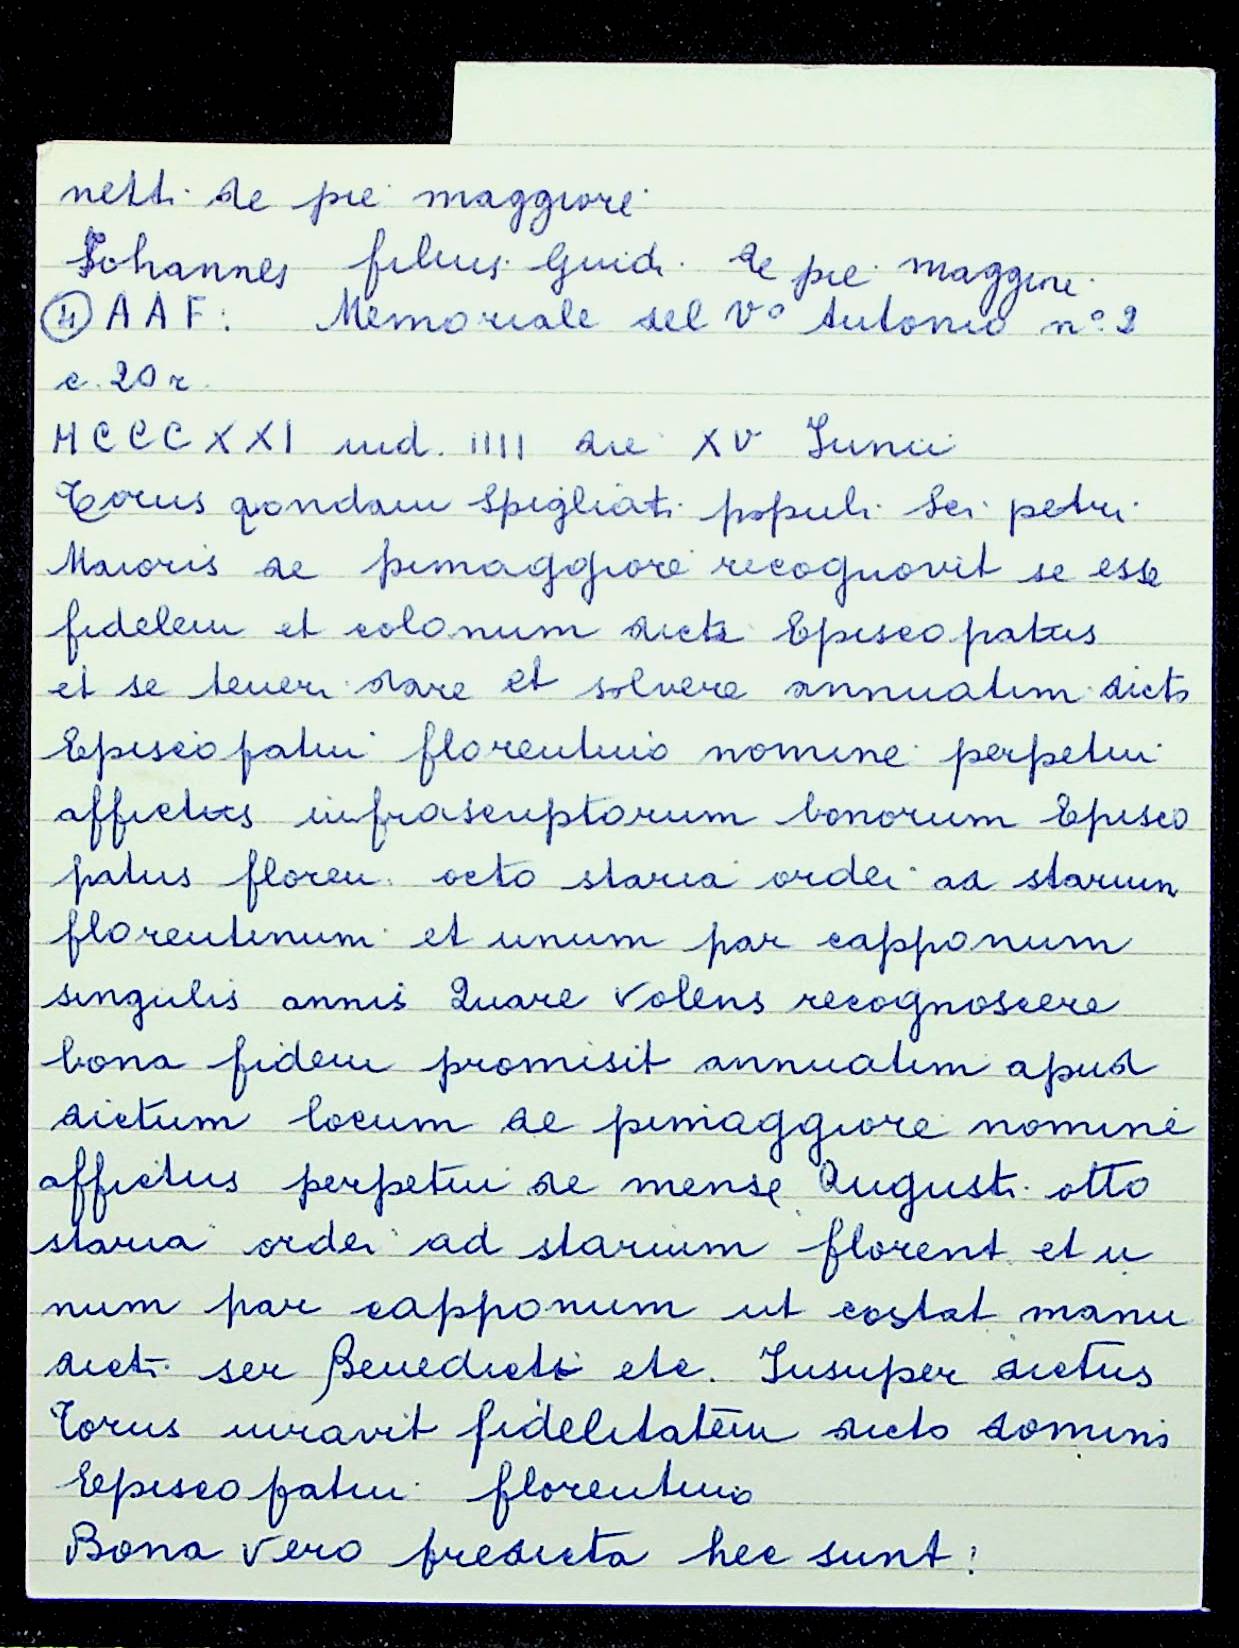 netti de pie maggiore
Johannes filius Guidi de pie maggiore
④ AAF: Memoriale del Vº Antonio nº 2
c. 20 r.
MCCCXXI ind. IIII die XV Junii
Corus qondam Spigliati populi Sci petri
Maioris de pimaggiore recognovit se esse
fidelem et colonum dicti Episcopatus
et se teneri dare et solvere annuatim dicto
Episcopatui florentino nomine perpetui
affictus infrascriptorum bonorum Episco
patus floren. octo staria ordei ad starium
florentinum et unum par capponum
singulis annis Quare volens recognoscere
bona fidem promisit annuatim apud
dictum locum de pimaggiore nomine
affictus perpetui de mense Augusti otto
staria ordei ad starium florent. et u
num par capponum ut costat manu
dicti ser Benedicti etc. Insuper dictus
Corus iuravit fidelitatem dicto domino
Episcopatui florentino
Bona vero predicta hec sunt: